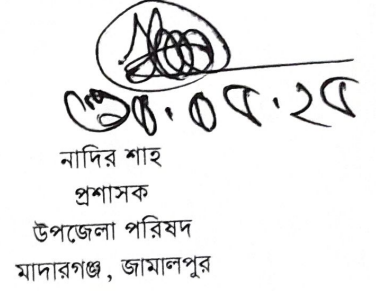 নাদির শাহ
প্রশাসক
উপজেলা পরিষদ
মাদারগঞ্জ, জামালপুর